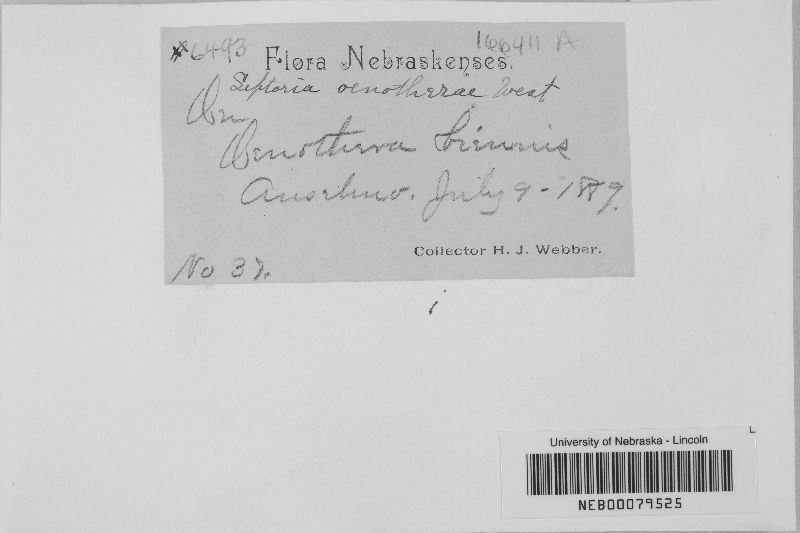 #6493
166411 A
Flora Nebraskenses.
Septoria oenotherae West
On
Oenothera biennis
Anselmo. July 9 - 1889.
Collector H. J. Webber.
No 37.
University of Nebraska - Lincoln
NEB00079525